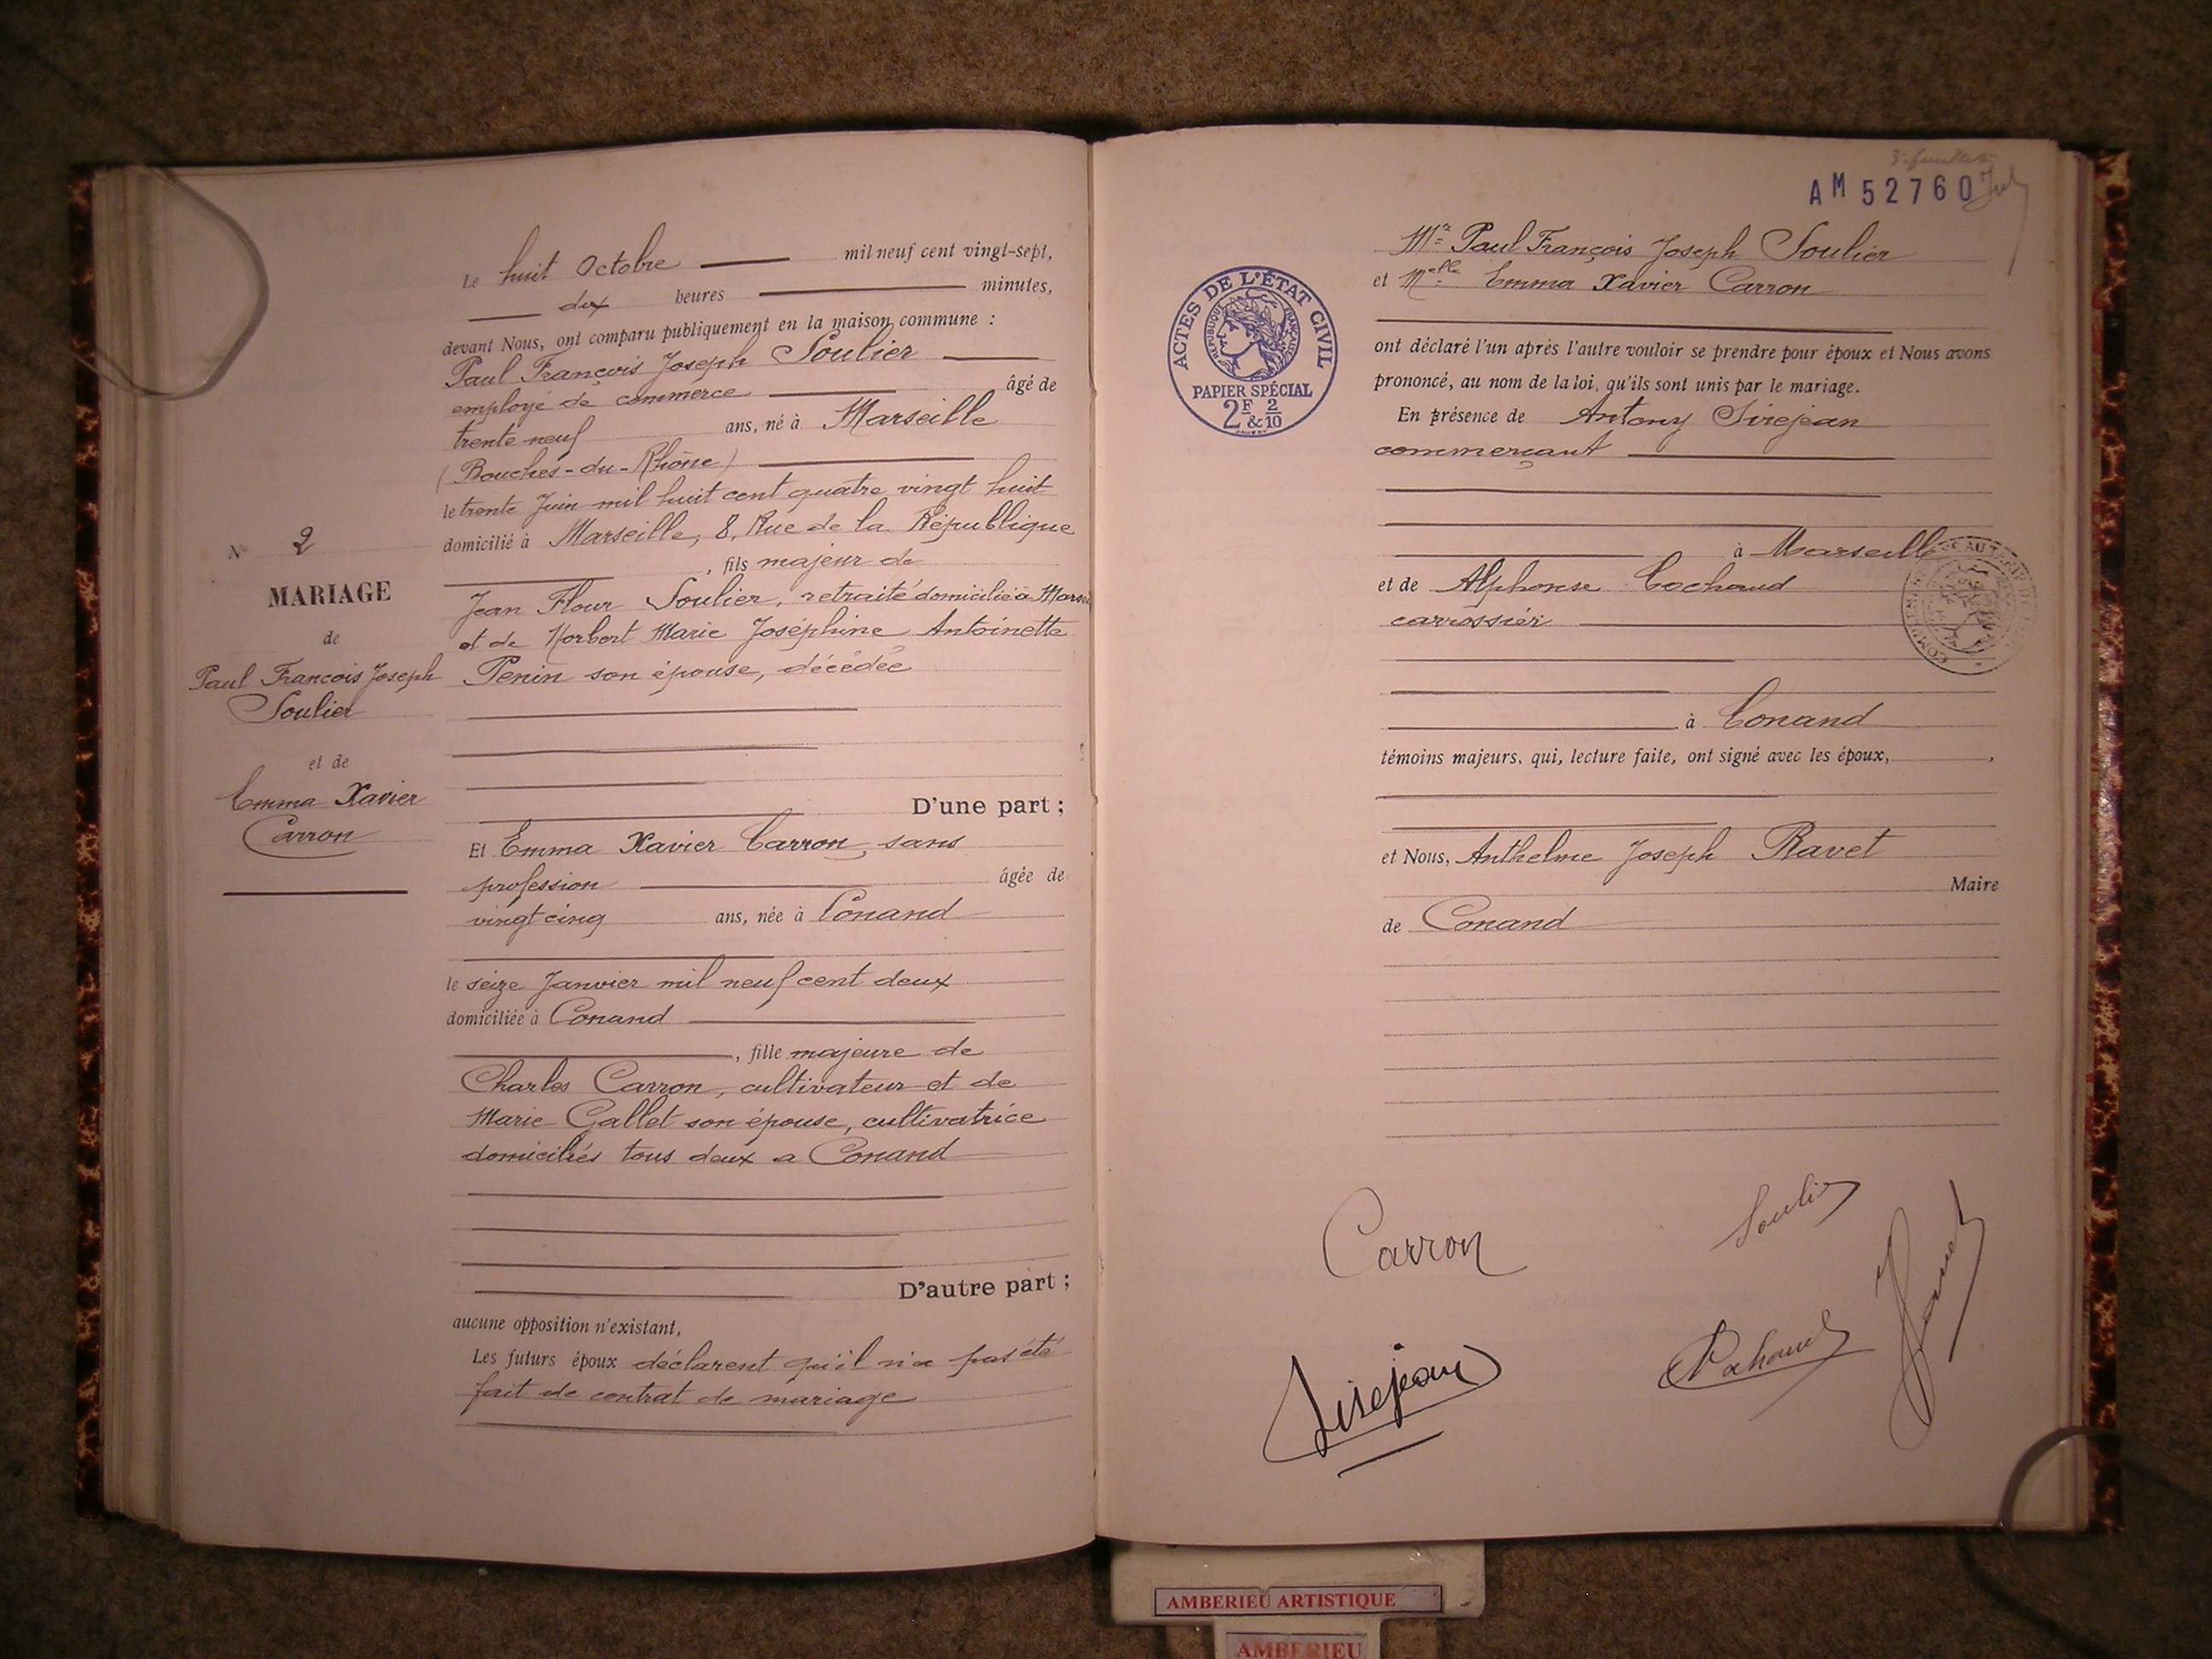 Le huit Octobre mil neuf cent vingt-sept,
dix heures minutes,
devant Nous, ont comparu publiquement en la maison commune :
Paul François Joseph Soulier
employé de commerce âgé de
trente neuf ans, né à Marseille
(Bouches-du-Rhône)
le trente Juin mil huit cent quatre vingt huit
domicilié à Marseille, 8, Rue de la République
, fils majeur de
Jean Flour Soulier, retraité domicilié à
et de Norbert Marie Joséphine Antoinette
Penin son épouse, décédée
D'une part ;
Et Emma Xavier Carron, sans
profession âgée de
vingt cinq ans, née à Conand
le seize Janvier mil neuf cent deux
domiciliée à Conand
, fille majeure de
Charles Carron, cultivateur et de
Marie Gallet son épouse, cultivatrice
domiciliés tous deux a Conand
D'autre part ;
aucune opposition n'existant,
Les futurs époux déclarent qu'il n'a pas été
fait de contrat de mariage
N° 2
MARIAGE
de
Paul François Joseph
Soulier
et de
Emma Xavier
Carron
AM 52760
ACTES DE L'ÉTAT CIVIL
RÉPUBLIQUE FRANÇAISE
PAPIER SPÉCIAL
2F & 2/10
Mr Paul François Joseph Soulier
et Melle Emma Xavier Carron
ont déclaré l'un après l'autre vouloir se prendre pour époux et Nous avons
prononcé, au nom de la loi, qu'ils sont unis par le mariage.
En présence de Antony Sirejean
commerçant
à Marseille
et de Alphonse Cochaud
carrossier
à Conand
témoins majeurs, qui, lecture faite, ont signé avec les époux, ,
et Nous, Anthelme Joseph Ravet
Maire
de Conand
Carron
Soulier
Sirejean
AMBERIEU ARTISTIQUE
AMBERIEU